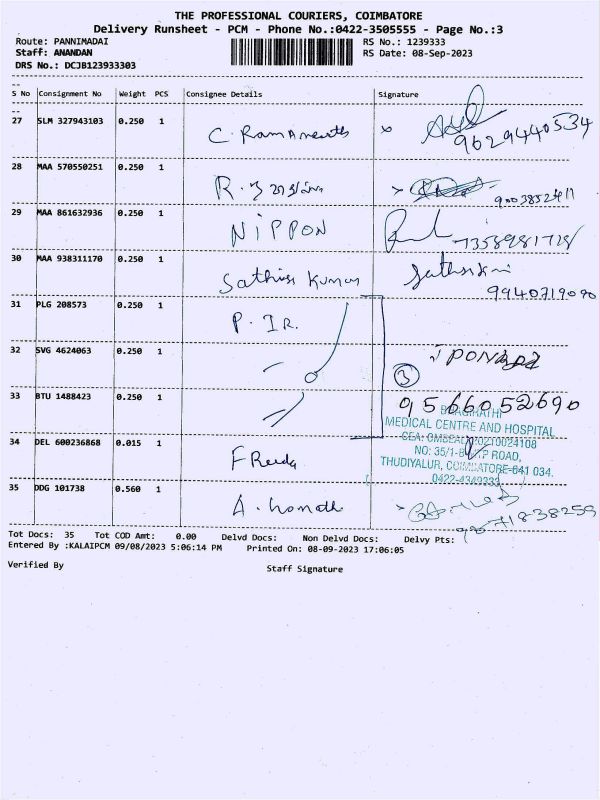 THE PROFESSIONAL COURIERS, COIMBATORE
Delivery Runsheet - PCM - Phone No.:0422-3505555 - Page No.:3
Route: PANNIMADAI RS No.: 1239333
Staff: ANANDAN RS Date: 08-Sep-2023
DRS No.: DCJB123933303
S No Consignment No Weight PCS Consignee Details Signature
27 SLM 327943103 0.250 1 C. Ramanenth x 9629440534
28 MAA 570550251 0.250 1 R.
29 MAA 861632936 0.250 1 NIPPON 7358981728
30 MAA 938311170 0.250 1 Sathish Kumar 9940719090
31 PLG 208573 0.250 1 P. IR.
32 SVG 4624063 0.250 1 3
33 BTU 1488423 0.250 1 9566052690
BHAGIRATHI
MEDICAL CENTRE AND HOSPITAL
34 DEL 600236868 0.015 1 Freeda
NO: 35/1- ROAD,
THUDIYALUR, COIMBATORE-641 034.
0422-4349333
35 DDG 101738 0.560 1 A.
Tot Docs: 35 Tot COD Amt: 0.00 Delvd Docs: Non Delvd Docs: Delvy Pts:
Entered By :KALAIPCM 09/08/2023 5:06:14 PM Printed On: 08-09-2023 17:06:05
Verified By Staff Signature